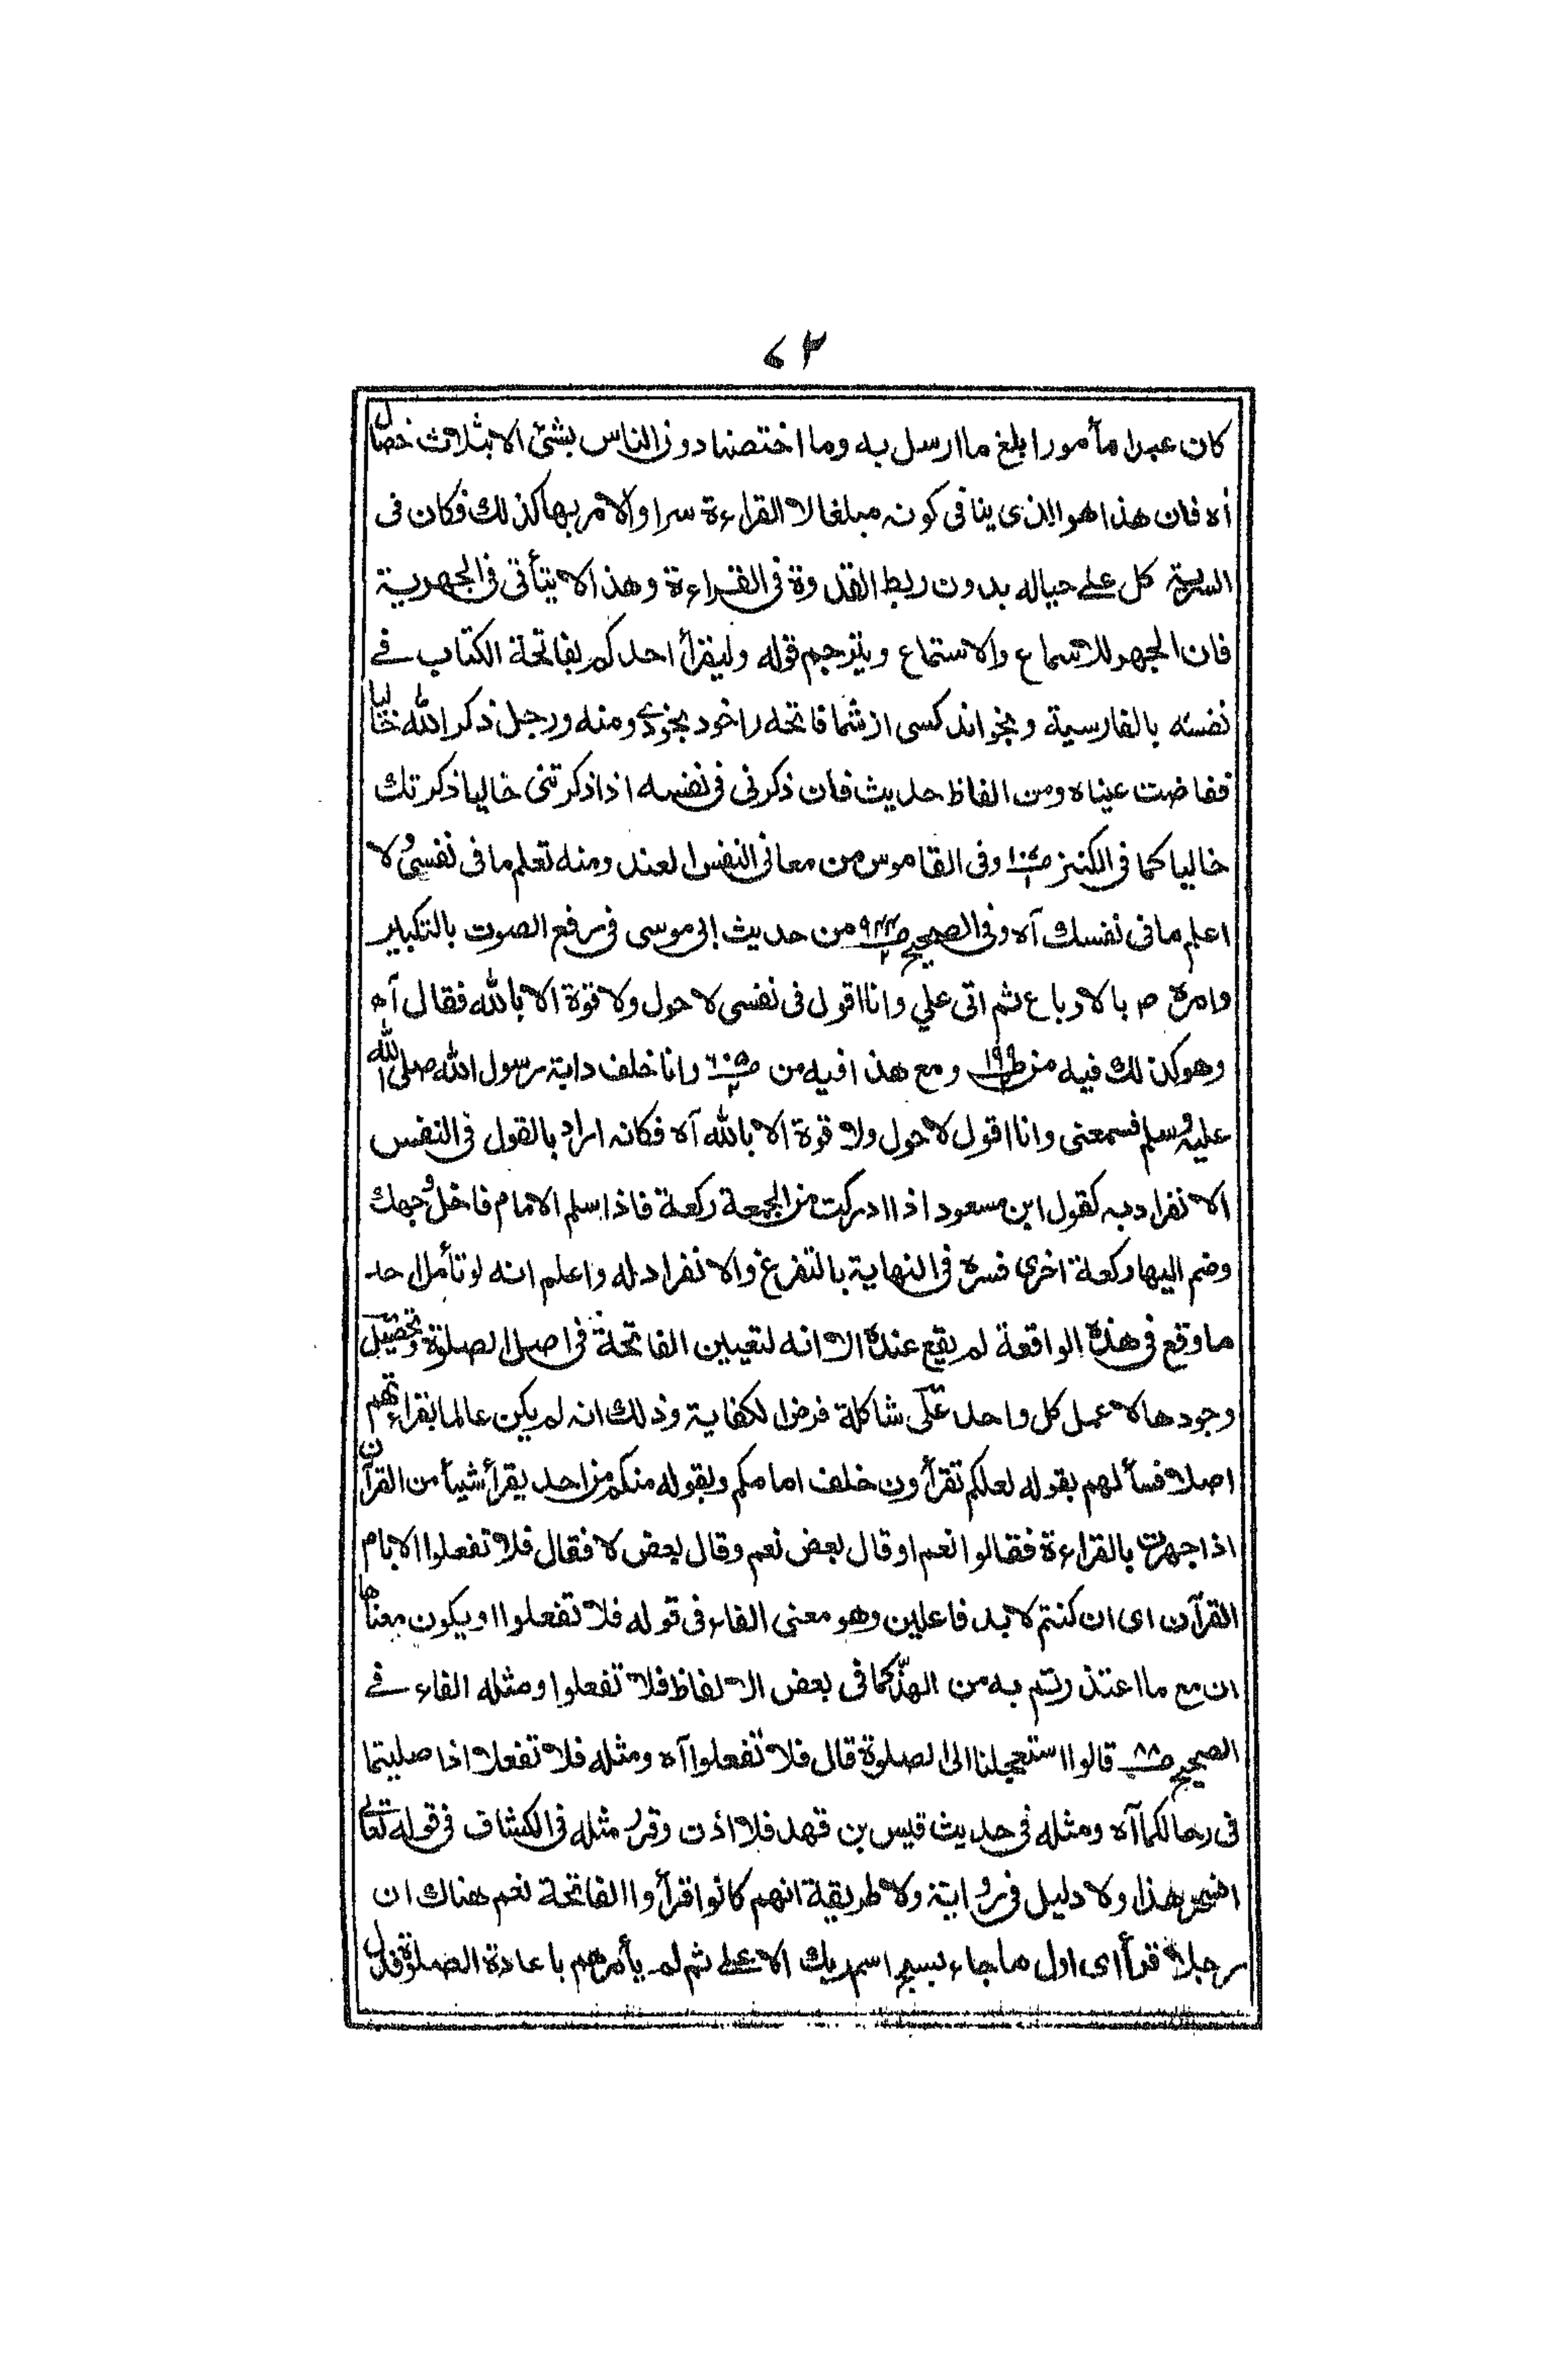 ٧٣
كان عبدا مأمورا بلغ ما ارسل به وما اختصنا دون الناس بشئ الا بثلاث خصال
اه فان هذا هو الذى ينافى كونه مبلغا لا القراءة سرا والامر بها كذلك فكان فى
السرية كل على حياله بدون ربط القدوة فى القراءة وهذا لا يتأتى فى الجهرية
فان الجهر للاسماع والاستماع ويترجم قوله وليقرأ احدكم بفاتحة الكتاب فے
نفسه بالفارسية وبخواند كسى از شما فاتحه را خود بخودے ومنه ورجل ذكر الله خاليا
ففاضت عيناه ومن الفاظ حديث فان ذكرنى فى نفسه اذا ذكرتنى خاليا ذكرتك
خاليا كما فى الكنز وفى القاموس من معانى النفس العند ومنه تعلم ما فى نفسى ولا
اعلم ما فى نفسك آه وفى الصحيح من حديث ابى موسى فى رفع الصوت بالتكبير
وامره م بالارباع ثم اتى علي وانا اقول فى نفسى لا حول ولا قوة الا بالله فقال آه
وهو كذلك فيه من ومع هذا فيه من ص ٦٠٥ وانا خلف دابة رسول الله صلى الله
عليه وسلم فسمعنى وانا اقول لا حول ولا قوة الا بالله آه فكانه اراد بالقول فى النفس
الانفراد به كقول ابن مسعود اذا ادركت من الجمعة ركعة فاذا سلم الامام فاخل وجهك
وضم اليها ركعة اخرى فسره فى النهاية بالتفرغ والانفراد له واعلم انه لو تأمل احد
ما وقع فى هذه الواقعة لم يقع عنده الا انه لتعيين الفاتحة فى اصل الصلوة وتحصيل
وجودها لا عمل كل واحد على شاكلة فرض الكفاية وذلك انه لم يكن عالما بقراءتهم
اصلا فسألهم بقوله لعلكم تقرأون خلف امامكم وبقوله منكم من احد يقرأ شيأ من القرآن
اذا جهرت بالقراءة فقالوا نعم او قال بعض نعم وقال بعض لا فقال فلا تفعلوا الا بام
القرآن اى ان كنتم لا بد فاعلين وهو معنى الفاء فى قوله فلا تفعلوا او يكون معناها
ان مع ما اعتذرتم به من الهذّ كما فى بعض الالفاظ فلا تفعلوا ومثله الفاء فے
الصحيح ص ٨٨ قالوا استعجلنا الى الصلوة قال فلا تفعلوا آه ومثله فلا تفعلا اذا صليتما
فى رحالكما آه ومثله فى حديث قيس بن قهد فلا اذن وقرر مثله فى الكشاف فى قوله تعالى
افسحر هذا ولا دليل فى رواية ولا طريقة انهم كانوا قرأوا الفاتحة نعم هناك ان
رجلا قرأ اى اول ما جاء بسبح اسم ربك الاعلى ثم لم يأمرهم باعادة الصلوة فدل